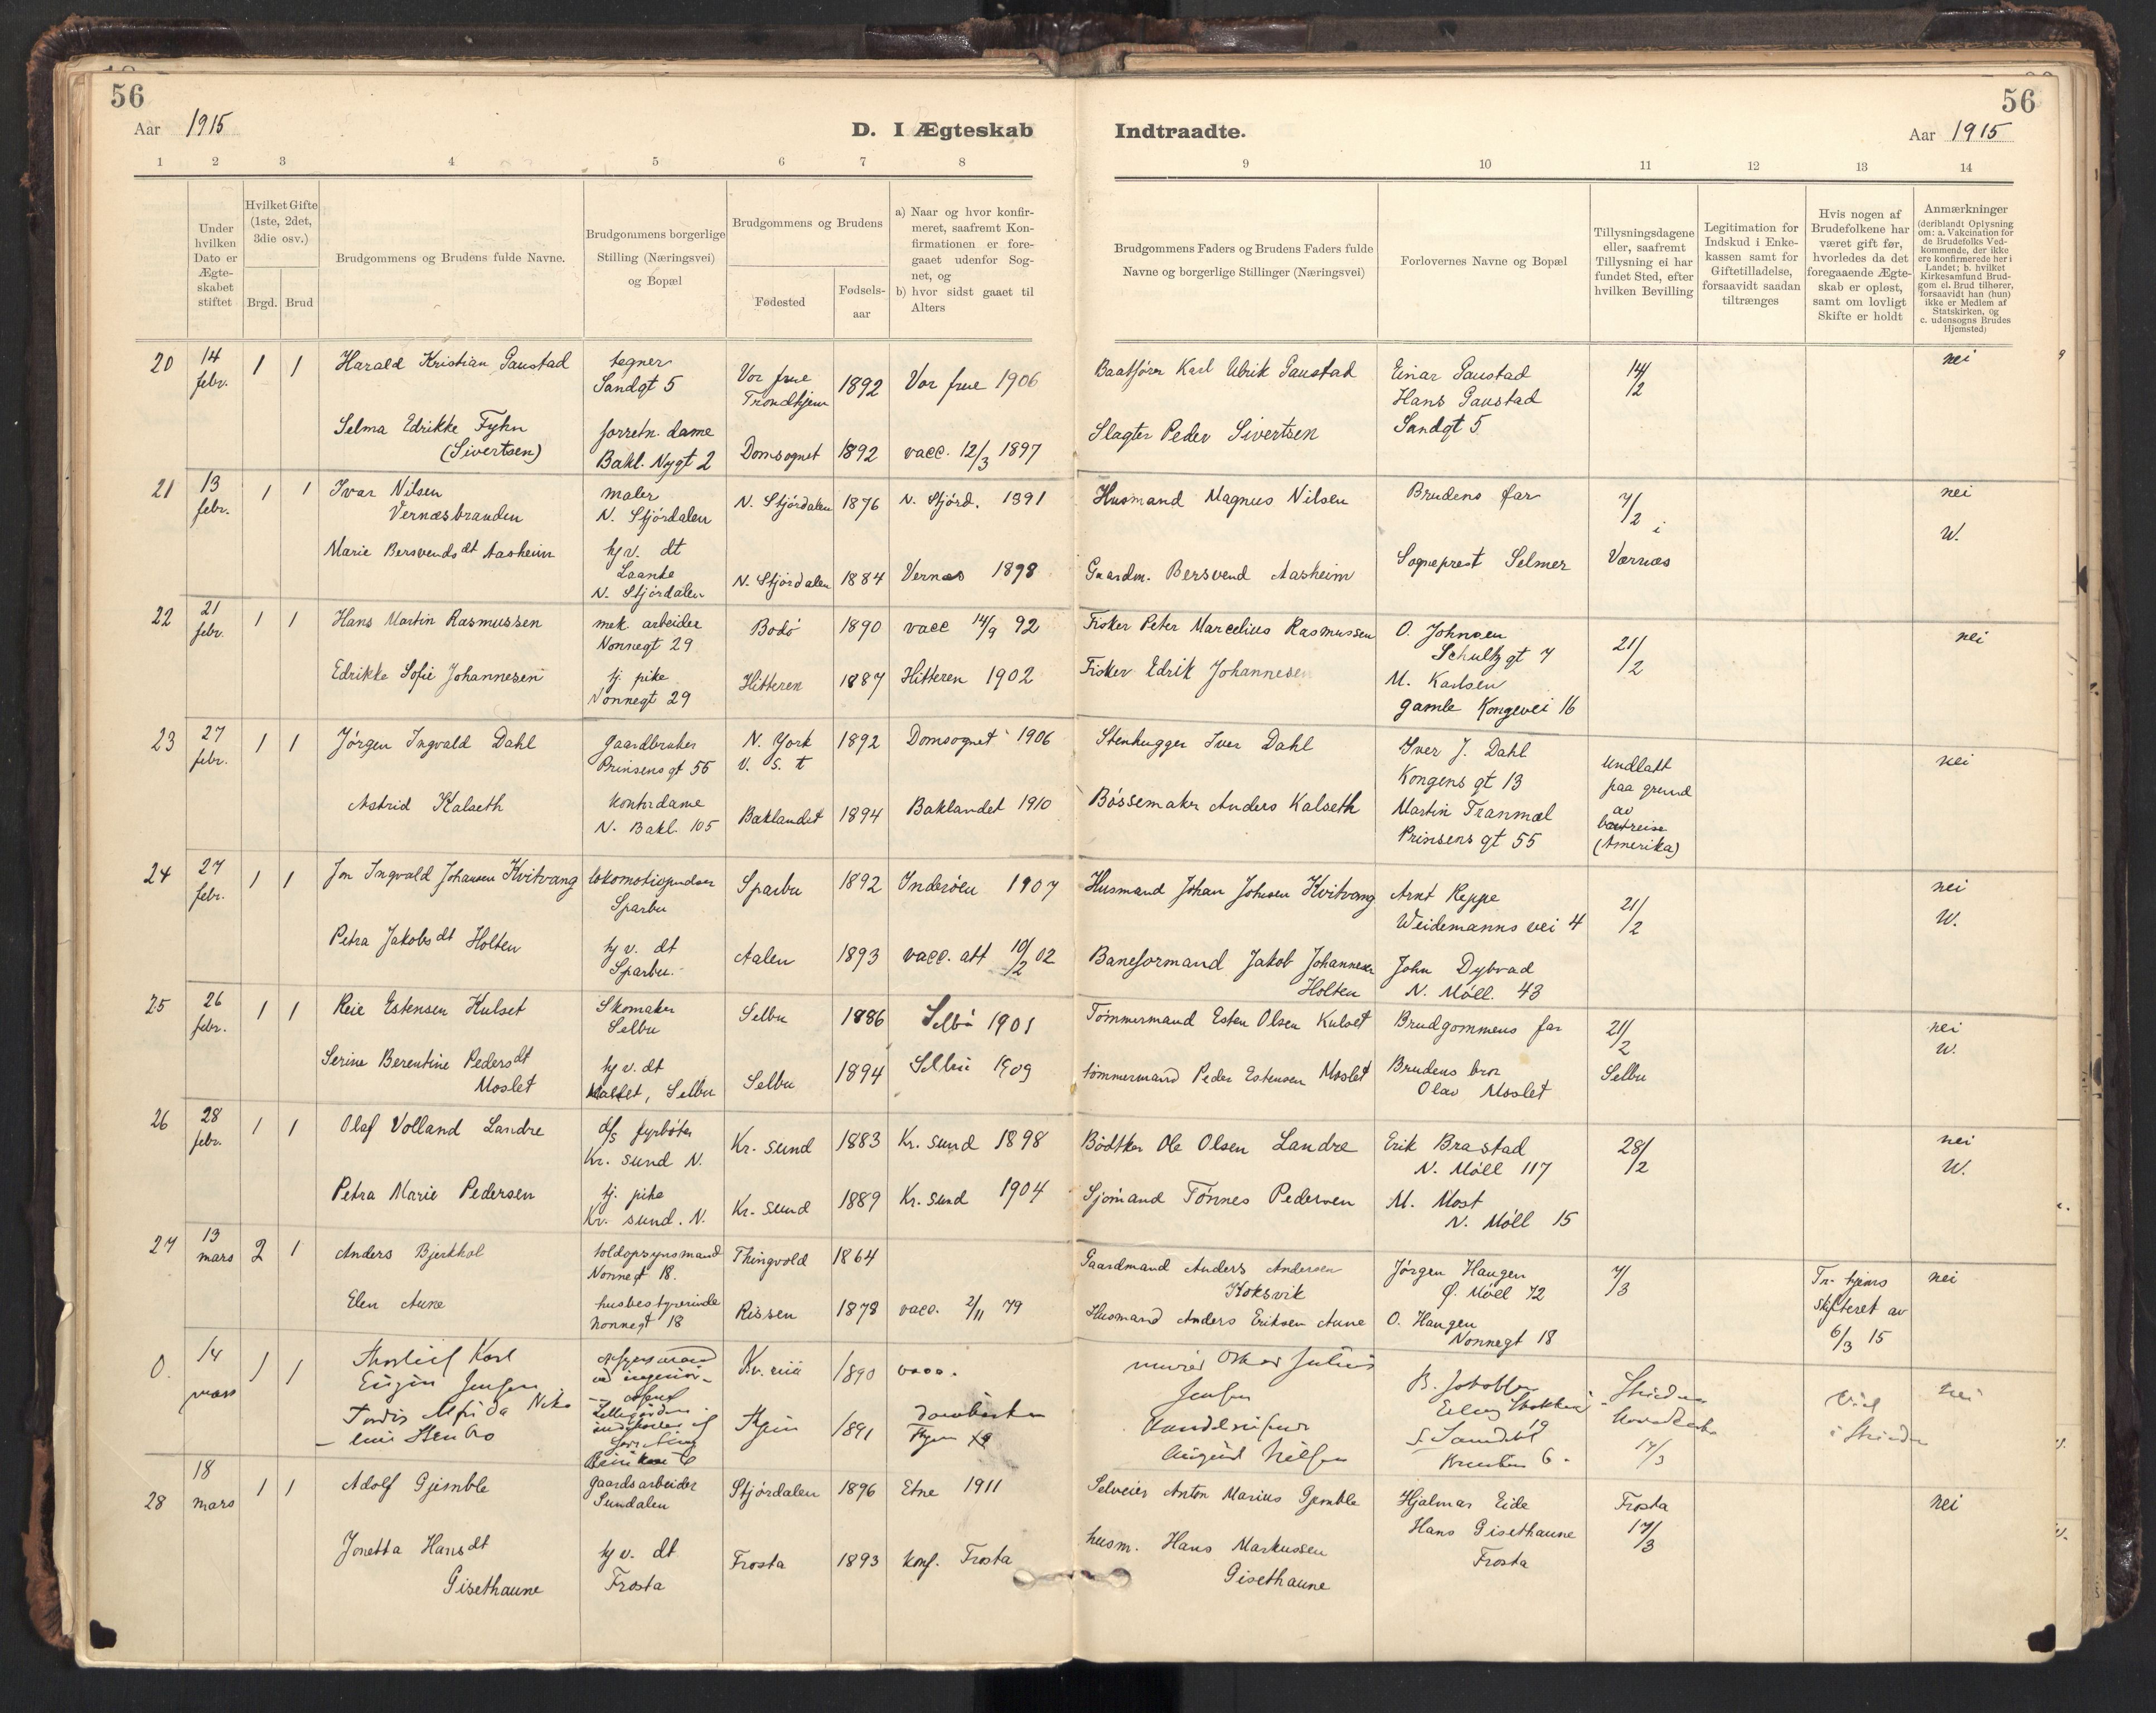 56
Aar 1915
D. I Ægteskab
1 2 3 4 5 6 7 8
Under hvilken Dato er Ægte-skabet stiftet
Hvilket Gifte (1ste, 2det, 3die osv.)
Brgd. Brud
Brudgommens og Brudens fulde Navne.
Brudgommens borgerlige Stilling (Næringsvei) og Bopæl
Brudgommens og Brudens
Fødested
Fødsels-aar
a) Naar og hvor konfir-meret, saafremt Kon-firmationen er fore-gaaet udenfor Sog-net, og
b) hvor sidst gaaet til Alters
56
Indtraadte.
Aar 1915
9 10 11 12 13 14
Brudgommens Faders og Brudens Faders fulde Navne og borgerlige Stillinger (Næringsvei)
Forlovernes Navne og Bopæl
Tillysningsdagene eller, saafremt Tillysning ei har fundet Sted, efter hvilken Bevilling
Legitimation for Indskud i Enke-kassen samt for Giftetilladelse, forsaavidt saadan tiltrænges
Hvis nogen af Brudefolkene har været gift før, hvorledes da det foregaaende Ægte-skab er opløst, samt om lovligt Skifte er holdt
Anmærkninger (deriblandt Oplysning om: a. Vakcination for de Brudefolks Ved-kommende, der ikke ere konfirmerede her i Landet; b. hvilket Kirkesamfund Brud-gom el. Brud tilhører, forsaavidt han (hun) ikke er Medlem af Statskirken, og c. udensogns Brudes Hjemsted)
20 14 febr. 1 1 Harald Kristian Gaustad tegner Sandgt 5 Vor frue Trondhjem 1892 Vor frue 1906 Baatfører Karl Ulrik Gaustad Einar Gaustad Hans Gaustad Sandgt 5 14/2 nei
Selma Edrikke Fyhn (Sivertsen) forretn. dame Bakl. Nygt 2 Domsognet 1892 vacc. 12/3 1897 Slagter Peder Sivertsen
21 13 febr. 1 1 Ivar Nilsen Vernæsbranden maler N. Stjørdalen N. Stjørdalen 1876 N. Stjørd. 1891 Husmand Magnus Nilsen Brudens far 7/2 i nei W.
Marie Bersvendsdt Aasheim hjv. dt Laante N. Stjørdalen N. Stjørdalen 1884 Vernæs 1898 Gaardm. Bersvend Aasheim Sogneprest Selmer Værnæs
22 21 febr. 1 1 Hans Martin Rasmussen mek arbeider Nonnegt 29 Bodø 1890 vacc 14/9 92 Fisker Peter Marcelius Rasmussen O. Johnsen Schultzgt 7 21/2 nei
Edrikke Sofie Johannesen tj. pike Nonnegt 29 Hitteren 1887 Hitteren 1902 Fisker Edrik Johannesen M. Karlsen gamle Kongevei 16
23 27 febr. 1 1 Jørgen Ingvald Dahl gaardbruker Prinsensgt 55 N. York U. S. 1892 Domsognet 1906 Stenhugger Iver Dahl Iver J. Dahl Kongens gt 13 undlatt paa grund av bortreise (Amerika) nei
Astrid Kalseth kontordame N. Bakl. 105 Baklandet 1894 Baklandet 1910 Bøssemaker Anders Kalseth Martin Tranmæl Prinsens gt 55
24 27 febr. 1 1 Jon Ingvald Johansen Kvitvang lokomotivpudser Sparbu Sparbu 1892 Inderøen 1907 Husmand Johan Johnsen Kvitvang Arnt Reppe Weidemanns vei 4 21/2 nei W.
Petra Jakobsdt Holten hjv. dt Sparbu Aalen 1893 vacc. att 10/2 02 Baneformand Jakob Johannesen Holten John Dybvad N. Møll. 43
25 26 febr. 1 1 Reie Estensen Kulset Skomaker Selbu Selbu 1886 Selbu 1901 Tømmermand Esten Olsen Kulset Brudgommens far 21/2 nei W.
Serine Berentine Pedersdt Moslet hjv. dt Moslet, Selbu Selbu 1894 Selbu 1909 tømmermand Peder Estensen Moslet Brudens bror Olav Moslet Selbu
26 28 febr. 1 1 Olaf Volland Landre d/s fyrbøter Kr. sund N. Kr. sund 1883 Kr. sund 1898 Bødtker Ole Olsen Landre Erik Brastad N. Møll 117 28/2 nei W.
Petra Marie Pedersen tj. pike Kr. sund. N. Kr. sund 1889 Kr. sund 1904 Sjømand Tønnes Pedersen M. Most N. Møll 15
27 13 mars 2 1 Anders Bjerkhol toldopsynsmand Nonnegt 18. Thingvold 1864 Gaardmand Anders Andersen Koksvik Jørgen Haugen Ø. Møll 72 7/3 Tr. hjems skifteret av 6/3 15 nei
Elen Aune husbestyrerinde Nonnegt 18 Rissen 1878 vacc. 2/11 79 Husmand Anders Eriksen Aune O. Haugen Nonnegt 18
0. 14 mars 1 1 Karl Jensen 1890 vacc. murer Oskar Julius Jensen nei
1891 August Nilsen 6. 14/3
28 18 mars 1 1 Adolf Gjemble gaardsarbeider Sundalen Stjørdalen 1896 Etne 1911 Selveier Anton Marius Gjemble Hjalmar Eide Hans Gisethaune Frosta Frosta 17/3 nei
Jonetta Hansdt Gisethaune hjv. dt Frosta Frosta 1893 konf. Frosta husm. Hans Markussen Gisethaune